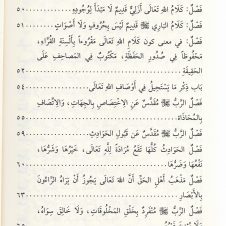 فَصْلٌ: كَلَامُ اللهِ تَعَالَى أَزَلِيٌّ قَدِيمٌ لَا مَبْدَأَ لِوُجُودِهِ ٥٠
فَصْلٌ: كَلَامُ البَارِي ﷻ قَدِيمٌ لَيْسَ بِحُرُوفٍ وَلَا أَصْوَاتٍ ٥١
فَصْلٌ: فِي مَعنى كَونِ كَلَامِ اللهِ تَعَالَى مَقْرُوءاً بِأَلْسِنَةِ القُرَّاءِ،
مَحْفُوظاً فِي صُدُورِ الحَفَظَةِ، مَكْتُوبٌ فِي المَصَاحِفِ عَلَى
الحَقِيقَةِ ٥٢
بَابُ ذِكْرِ مَا يَسْتَحِيلُ فِي أَوْصَافِ اللهِ تَعَالَى ٥٤
فَصْلٌ: الرَّبُّ ﷻ مُقَدَّسٌ عَنِ الاخْتِصَاصِ بِالجِهَاتِ، وَالاتِّصَافِ
بِالمُحَاذَاةِ ٥٥
فَصْلٌ: الرَّبُّ ﷻ مُقَدَّسٌ عَن قَبُولِ الحَوَادِثِ ٥٩
فَصْلٌ: الحَوَادِثُ كُلُّهَا تَقَعُ مُرَادَةً لِلَّهِ تَعَالَى، خَيْرُهَا وَشَرُّهَا،
نَفْعُهَا وَضَرُّهَا ٦٠
فَصْلٌ: مَذْهَبُ أَهْلِ الحَقِّ أَنَّ اللهَ تَعَالَى يَجُوزُ أَنْ يَرَاهُ الرَّاءُونَ
بِالأَبْصَارِ ٦٣
فَصْلٌ: الرَّبُّ ﷻ مُتَفَرِّدٌ بِخَلْقِ المَخْلُوقَاتِ، وَلَا خَالِقَ سِوَاهُ،